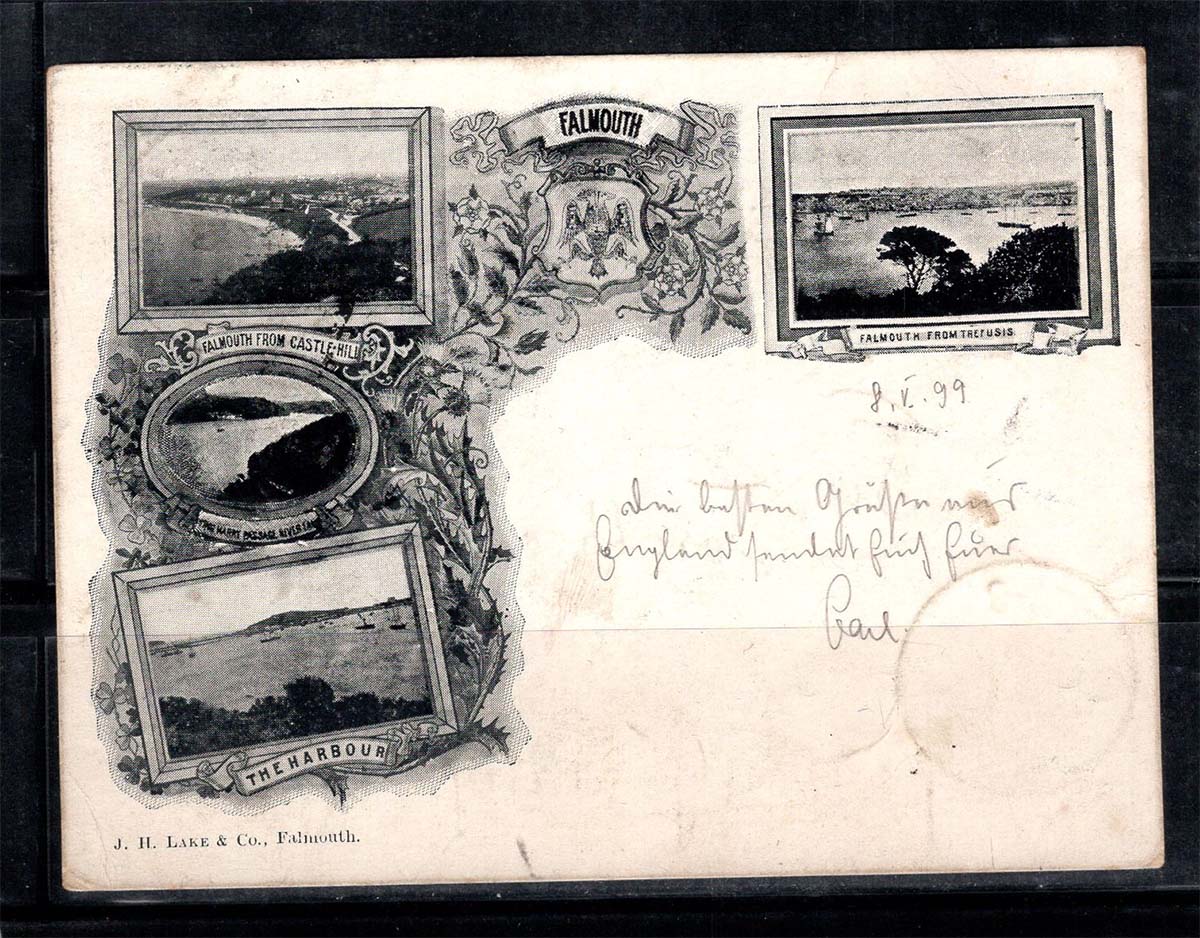 FALMOUTH
FALMOUTH FROM CASTLE-HILL
FALMOUTH FROM TREFUSIS
8. V. 99
Die besten Grüße aus
England sendet Euch Euer
Carl.
PASSAGE
THE HARBOUR
J. H. LAKE & Co., Falmouth.